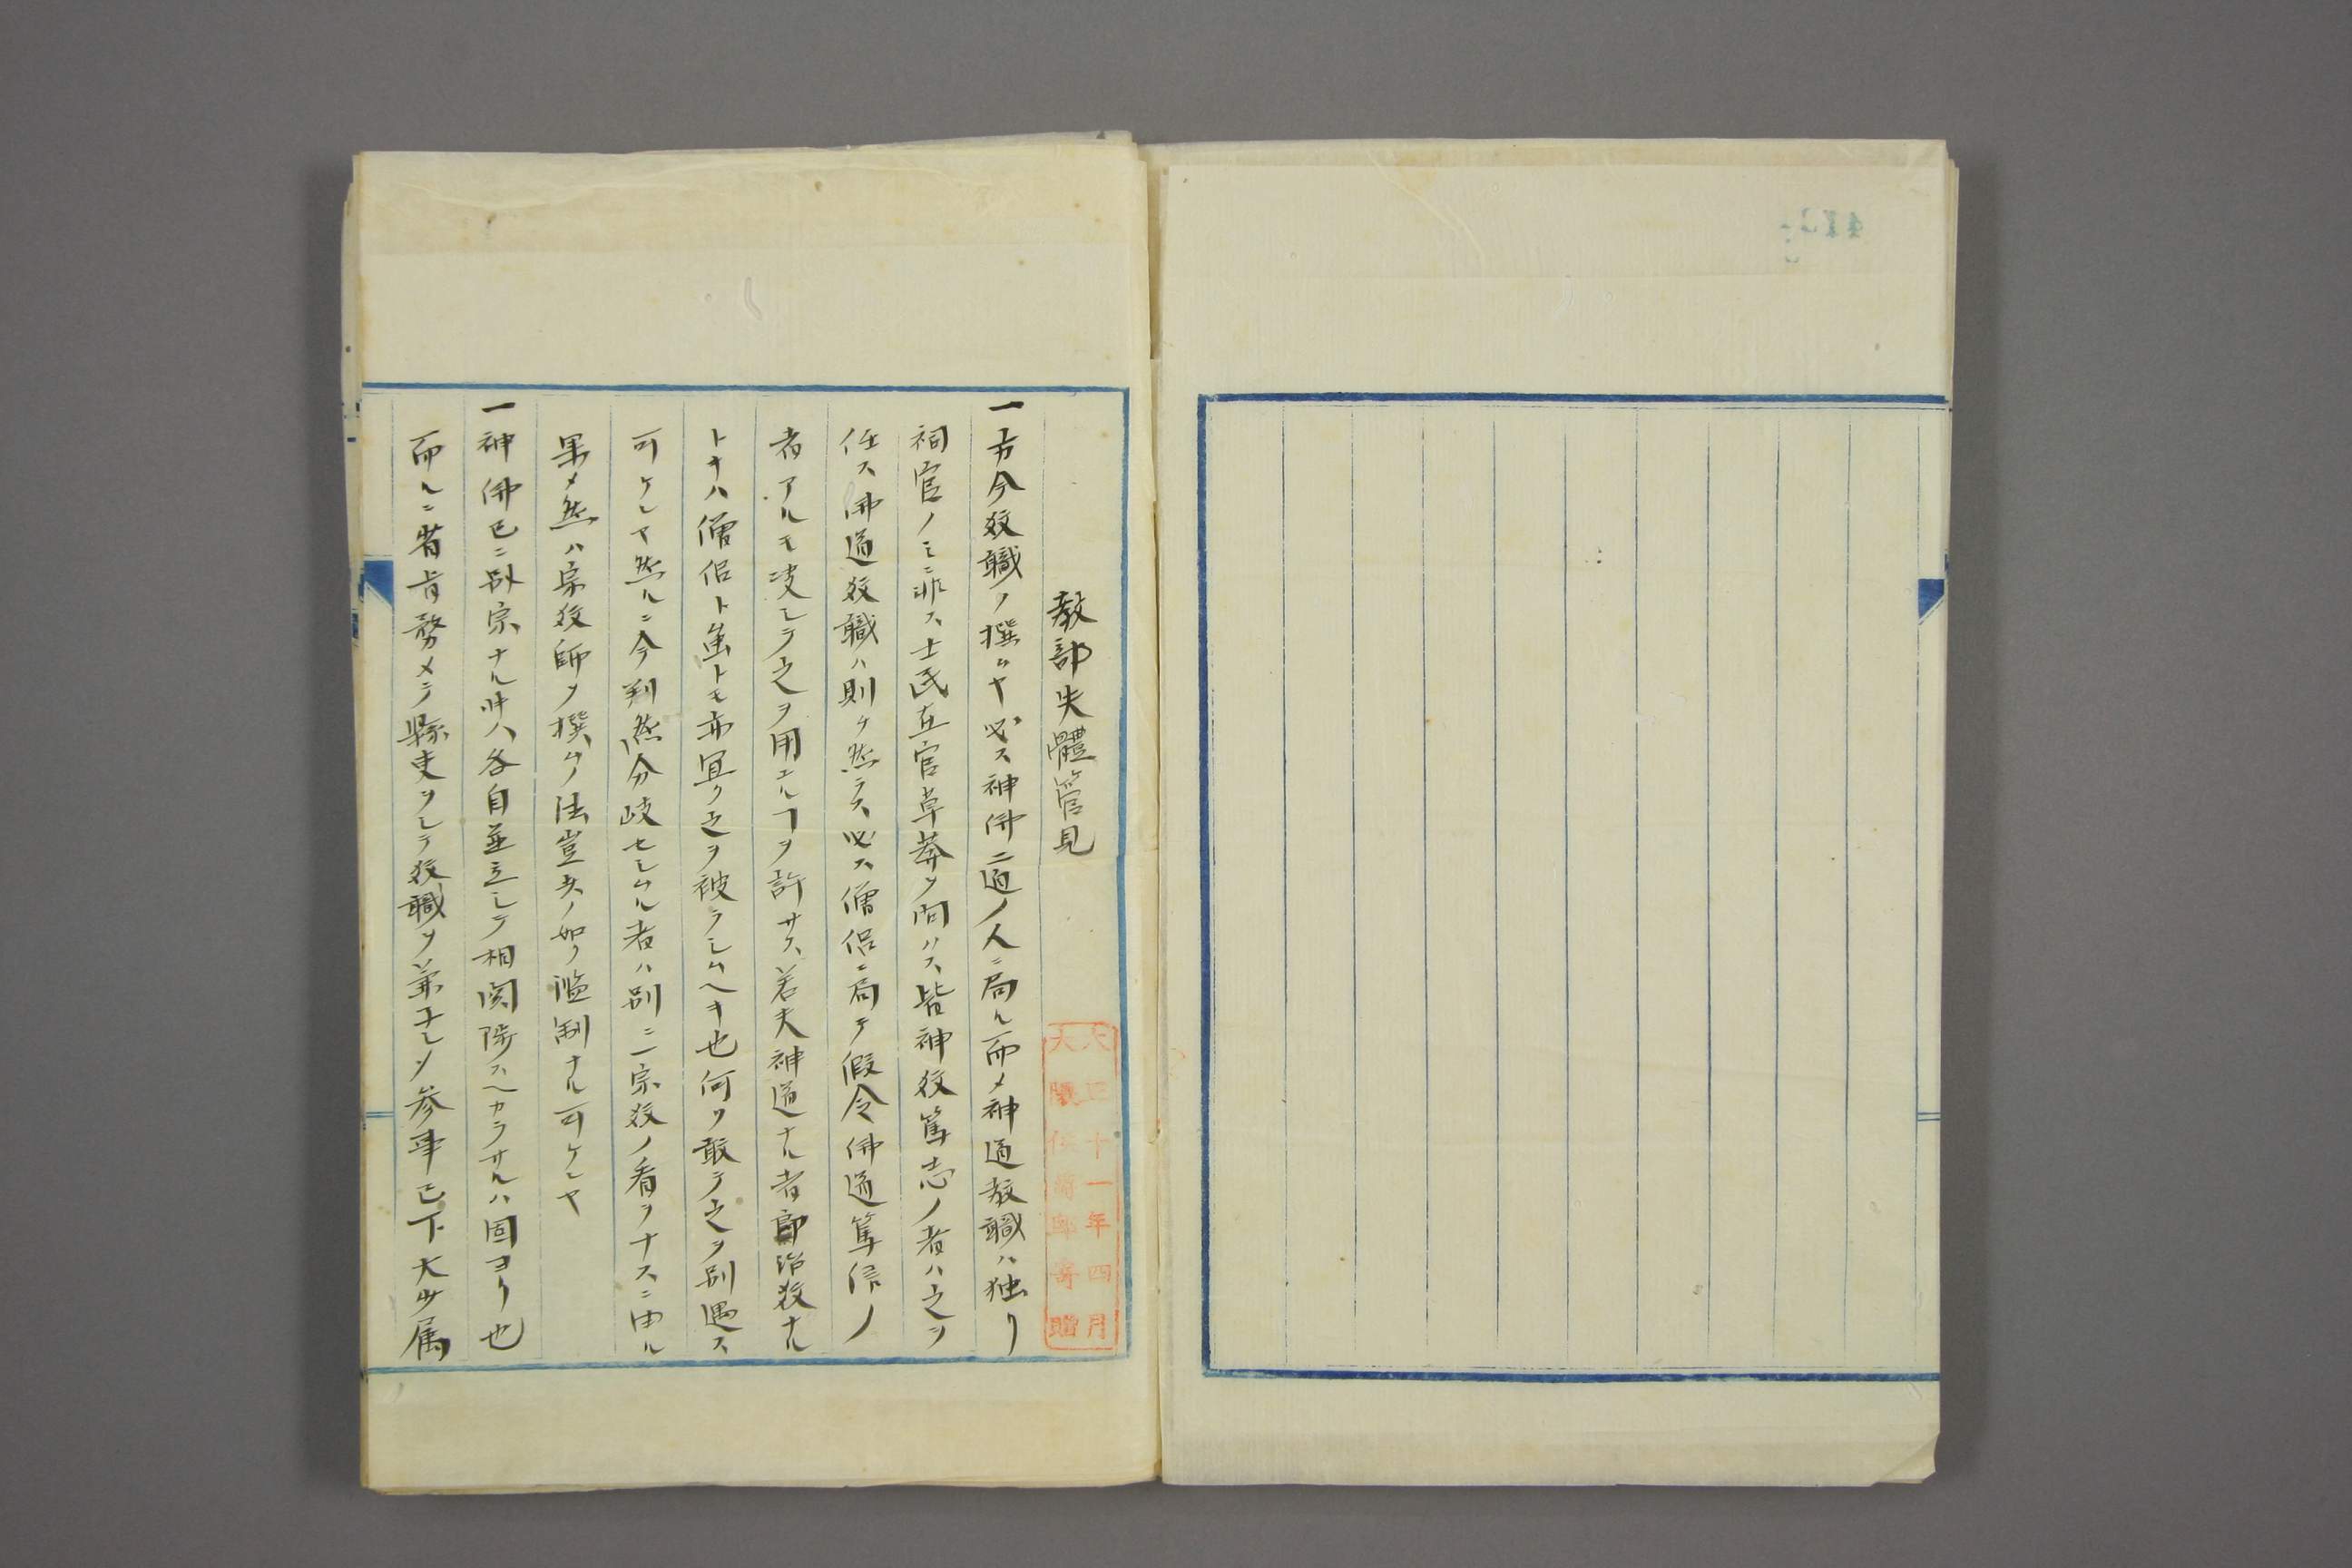 教部失體管見
大正十一年四月
大隈侯爵家寄贈
一方今教職ノ撰ムヤ必ス神佛二道ノ人ニ局ル而メ神道教職ハ独リ
祠官ノミニ非ス士民在官草莽ヲ問ハス皆神教篤志ノ者ハ之ヲ
任ス佛道教職ハ則チ然ラス必ス僧侶ニ局テ假令佛道篤信ノ
者アルモ决シテ之ヲ用エルヿヲ許サス若夫神道ナル者即治教ナル
トキハ僧侶ト虽トモ亦冝ク之ヲ被ラシムヘキ也何ソ敢テ之ヲ別遇ス
可ケンヤ然ルニ今判然分岐セシムル者ハ別ニ一宗教ノ看ヲナスニ由ル
果メ然ハ宗教師ヲ撰ムノ法豈夫ノ如ク濫制ナル可ケンヤ
一神佛已ニ別宗ナル時ハ各自並立シテ相関渉スヘカラサルハ固ヨリ也
而ルニ省旨務メテ縣吏ヲシテ教職ヲ兼子シメ参事已下大少属